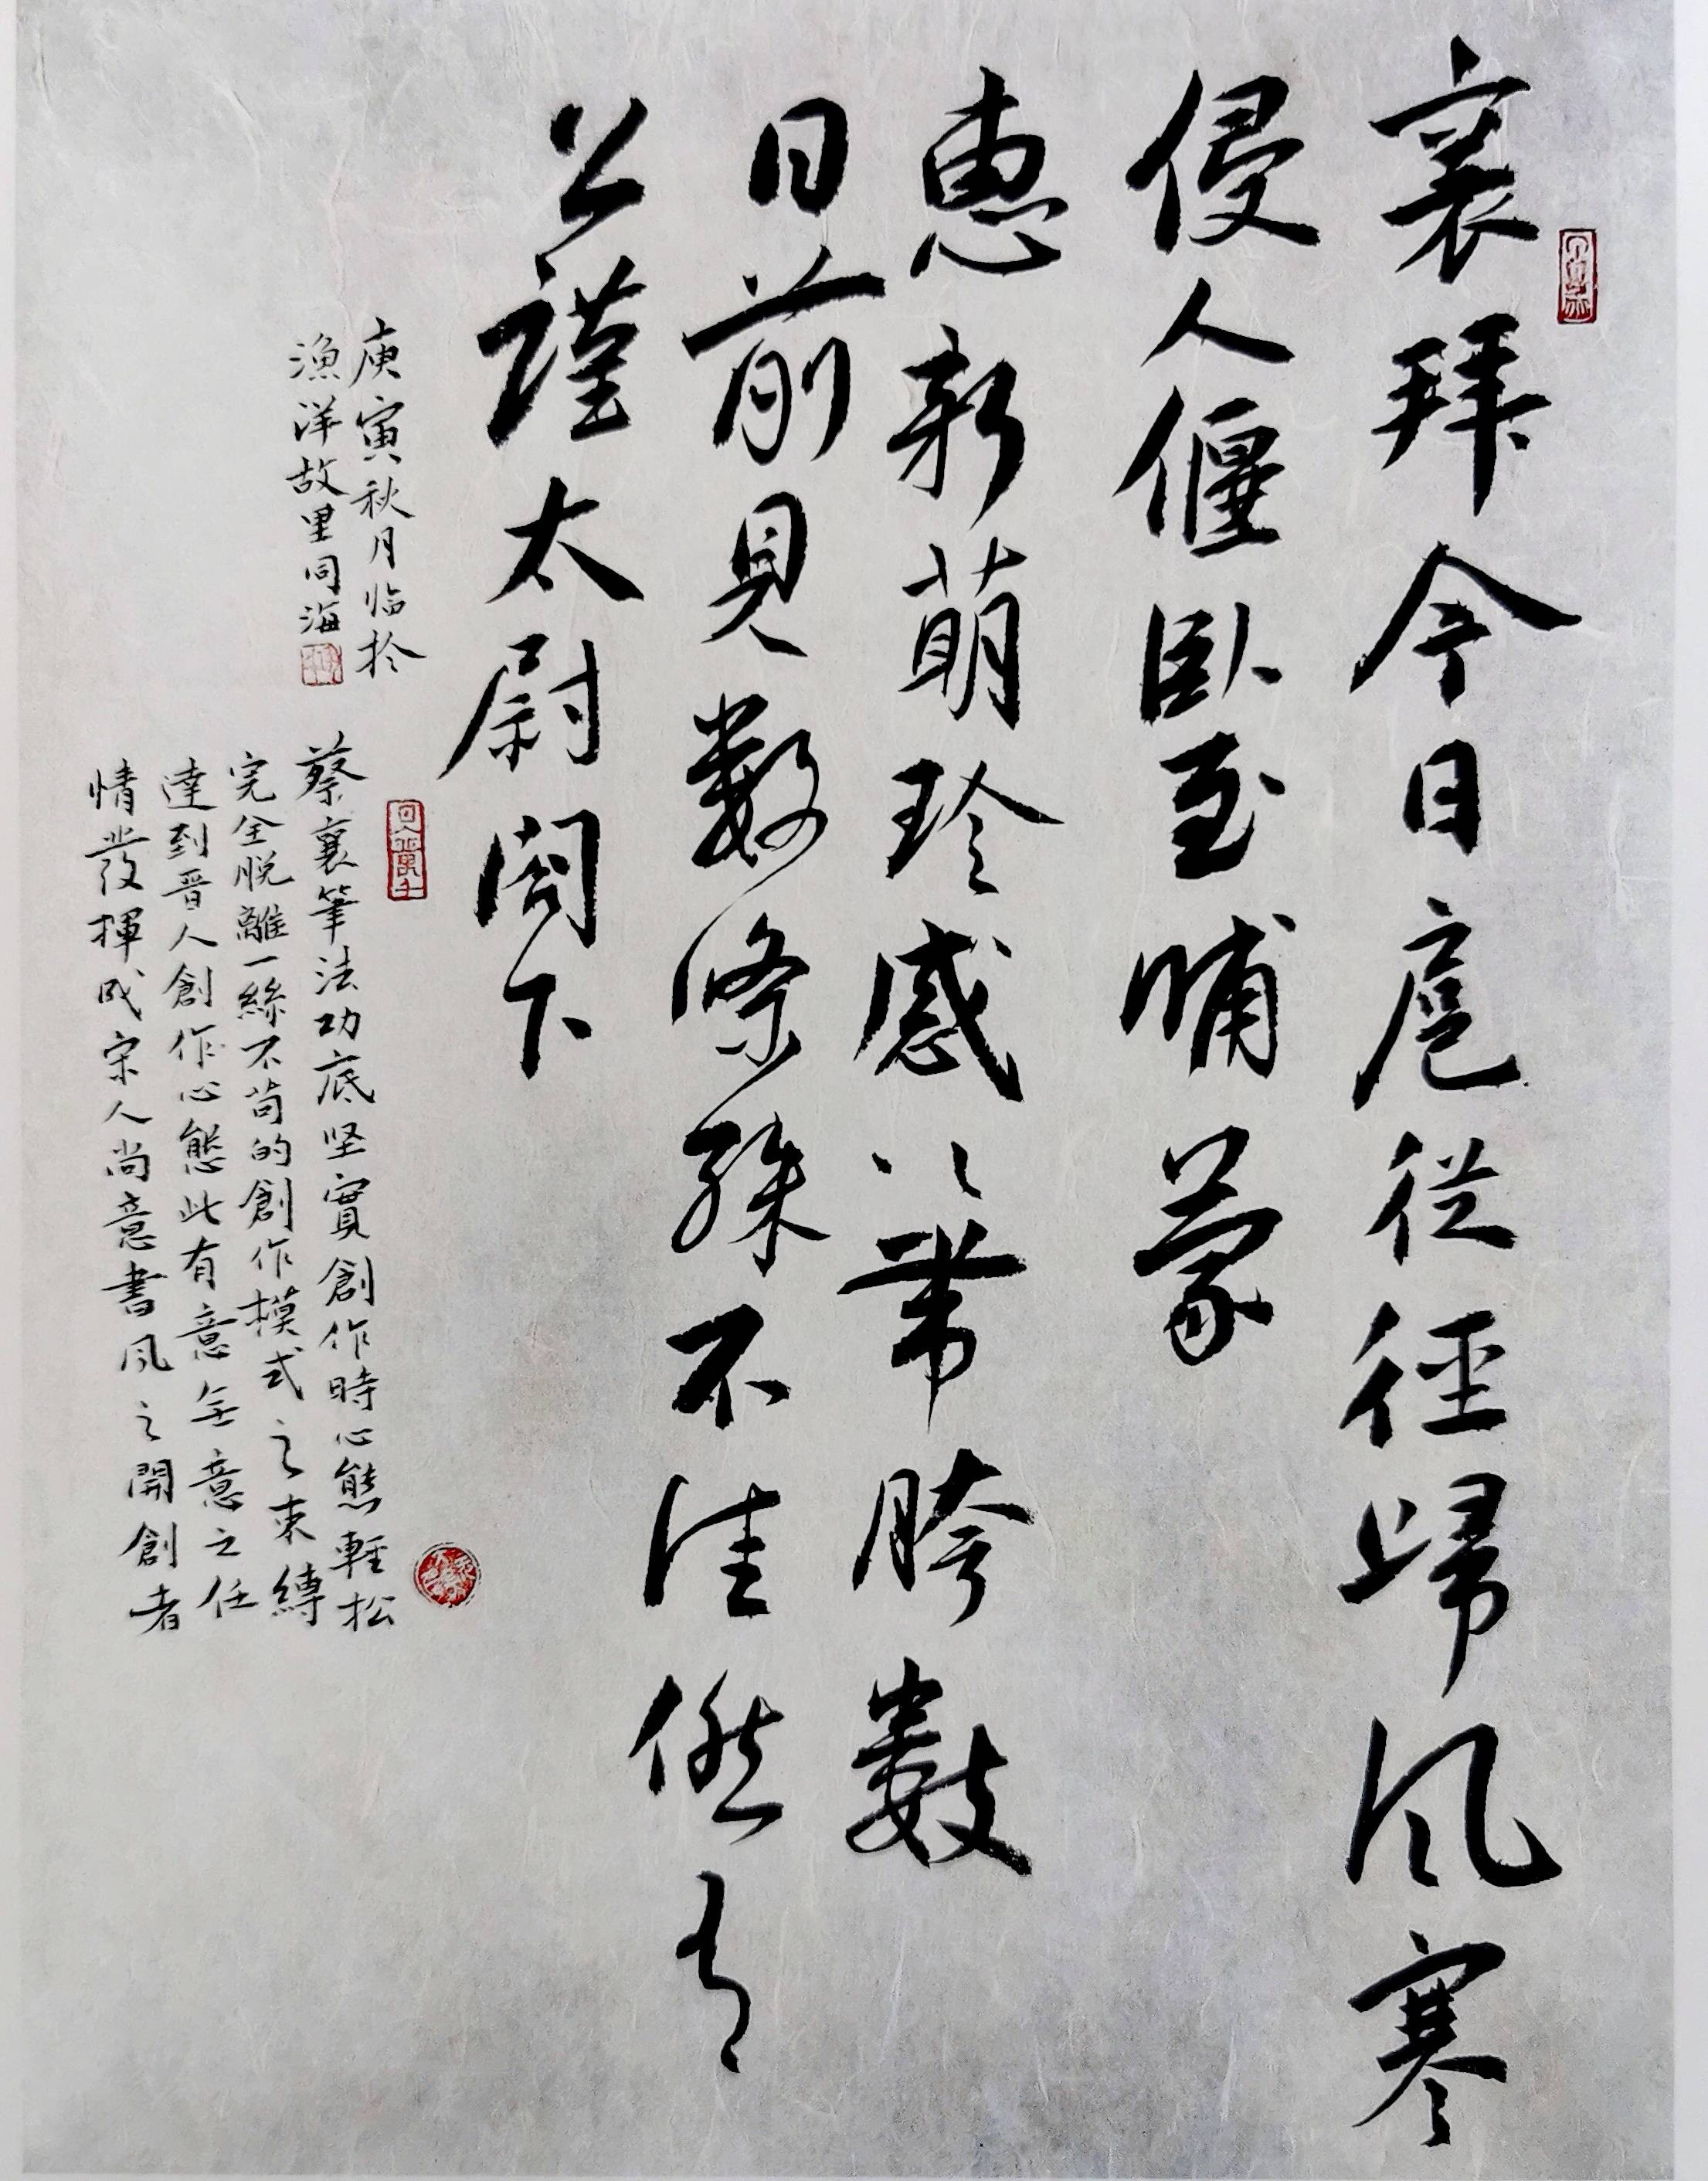 襄拜今日扈從徑歸風寒
侵人偃臥至晡蒙
惠新萌珍感珍感帶胯數
日前見數條殊不佳候有
公謹太尉閤下
庚寅秋月临於
漁洋故里同海
蔡襄筆法功底坚實創作時心態輕松
完全脫離一絲不苟的創作模式之束縛
達到晋人創作心態此有意無意之任
情發揮成宋人尚意書风之開創者